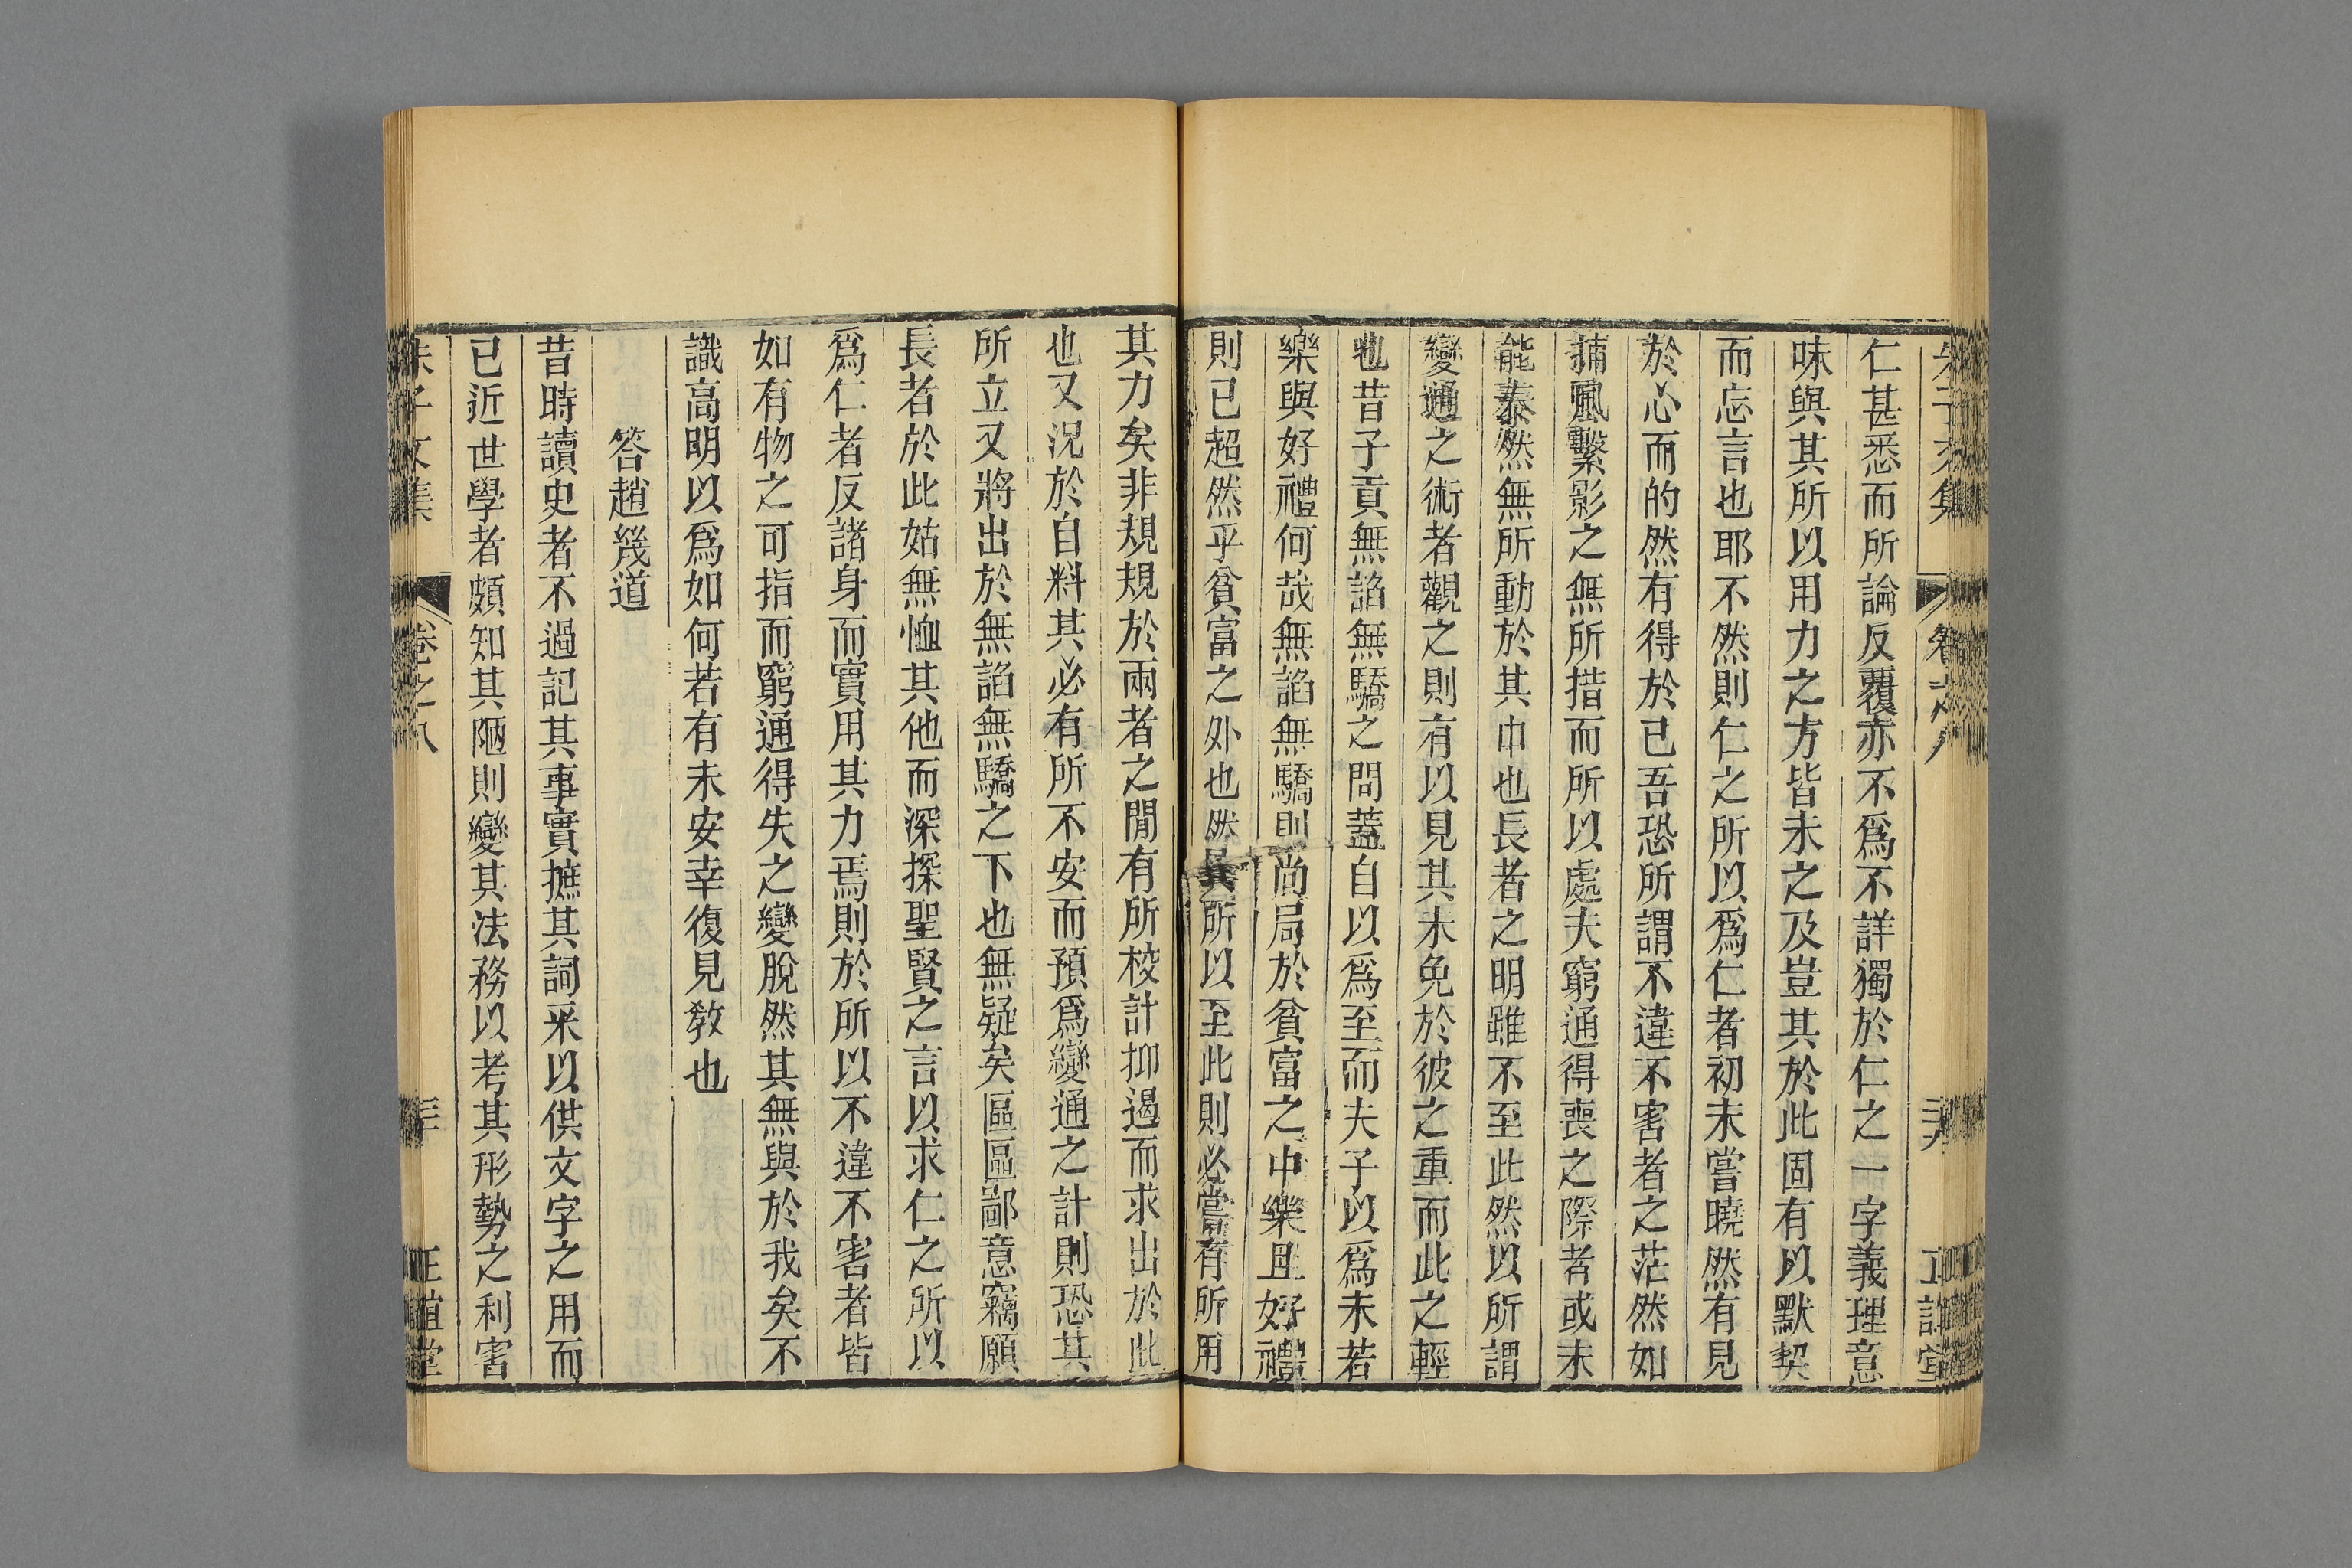 仁甚悉而所論反覆亦不爲不詳獨於仁之一字義理意
味與其所以用力之方皆未之及豈其於此固有以默契
而忘言也耶不然則仁之所以爲仁者初未嘗曉然有見
於心而的然有得於已吾恐所謂不違不害者之茫然如
捕風繫影之無所措而所以處夫窮通得喪之際者或未
能泰然無所動於其中也長者之明雖不至此然以所謂
變通之術者觀之則有以見其未免於彼之重而此之輕
也昔子貢無諂無驕之問蓋自以爲至而夫子以爲未若
樂與好禮何哉無諂無驕則尚局於貧富之中樂且好禮
則已超然乎貧富之外也然其所以至此則必嘗有所用
其力矣非規規於兩者之閒有所校計抑遏而求出於此
也又況於自料其必有所不安而預爲變通之計則恐其
所立又將出於無諂無驕之下也無疑矣區區鄙意竊願
長者於此姑無恤其他而深探聖賢之言以求仁之所以
爲仁者反諸身而實用其力焉則於所以不違不害者皆
如有物之可指而窮通得失之變脫然其無與於我矣不
識高明以爲如何若有未安幸復見敎也
答趙幾道
昔時讀史者不過記其事實摭其詞采以供文字之用而
已近世學者頗知其陋則變其法務以考其形勢之利害
朱子文集 卷之八